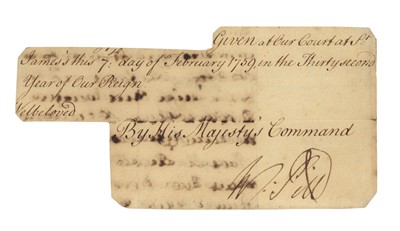 Given at Our Court at St.
James's this 7th: day of February 1759, in the Thirty second
Year of Our Reign
Welbeloved
By His Majesty's Command
W: Pitt